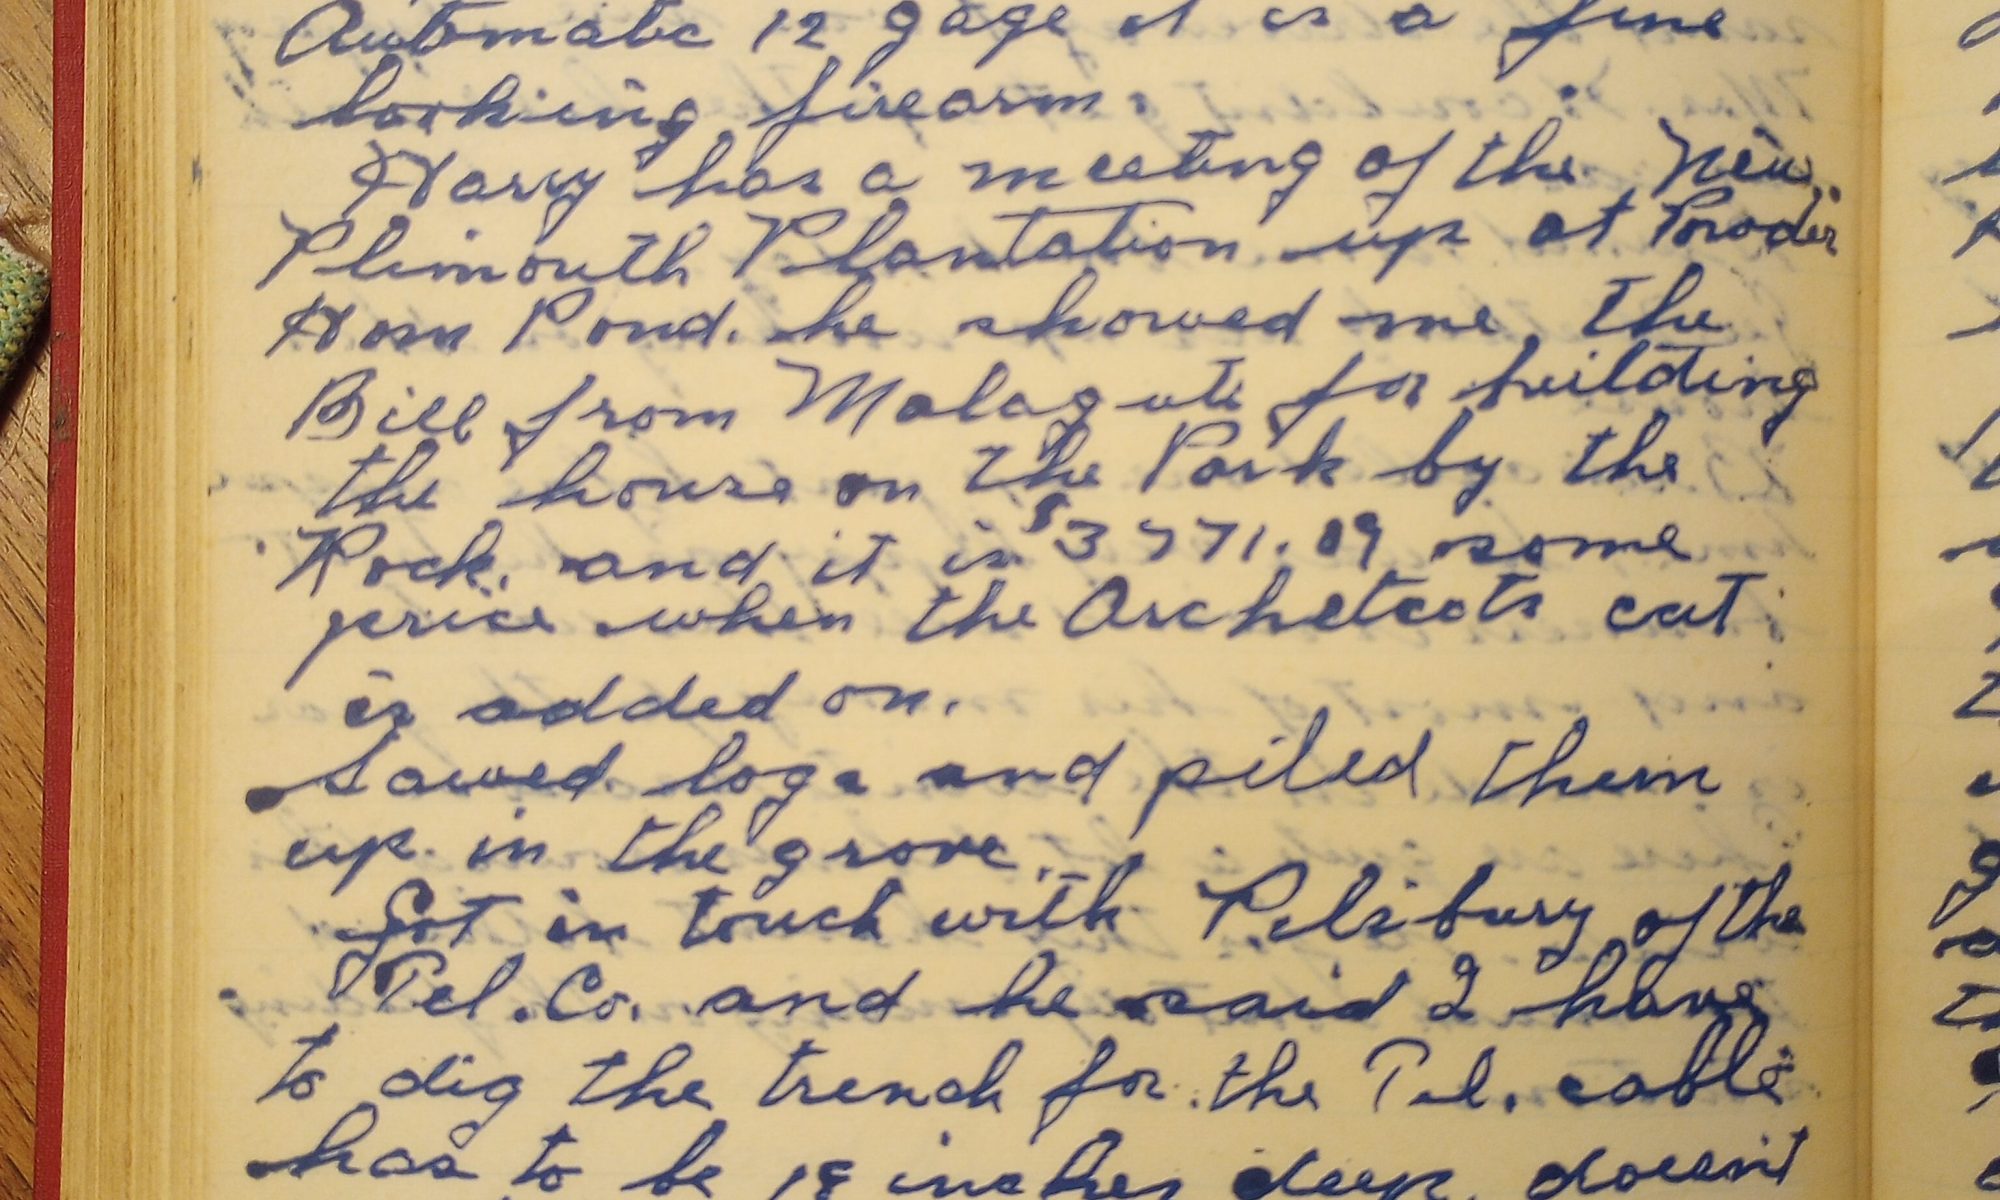 Automatic 12 gage it is a fine
looking firearm.
Harry has a meeting of the New
Plimouth Plantation up at Powder
Horn Pond. he showed me the
Bill from Malaguti for building
the house on the Park by the
Rock. and it is $3771.09 some
price when the Archetects cut
is added on.
Sawed logs and piled them
up in the grove.
Got in touch with Pilsbury of the
Tel. Co. and he said I have
to dig the trench for the Tel. cable
has to be 18 inches deep. doesnt